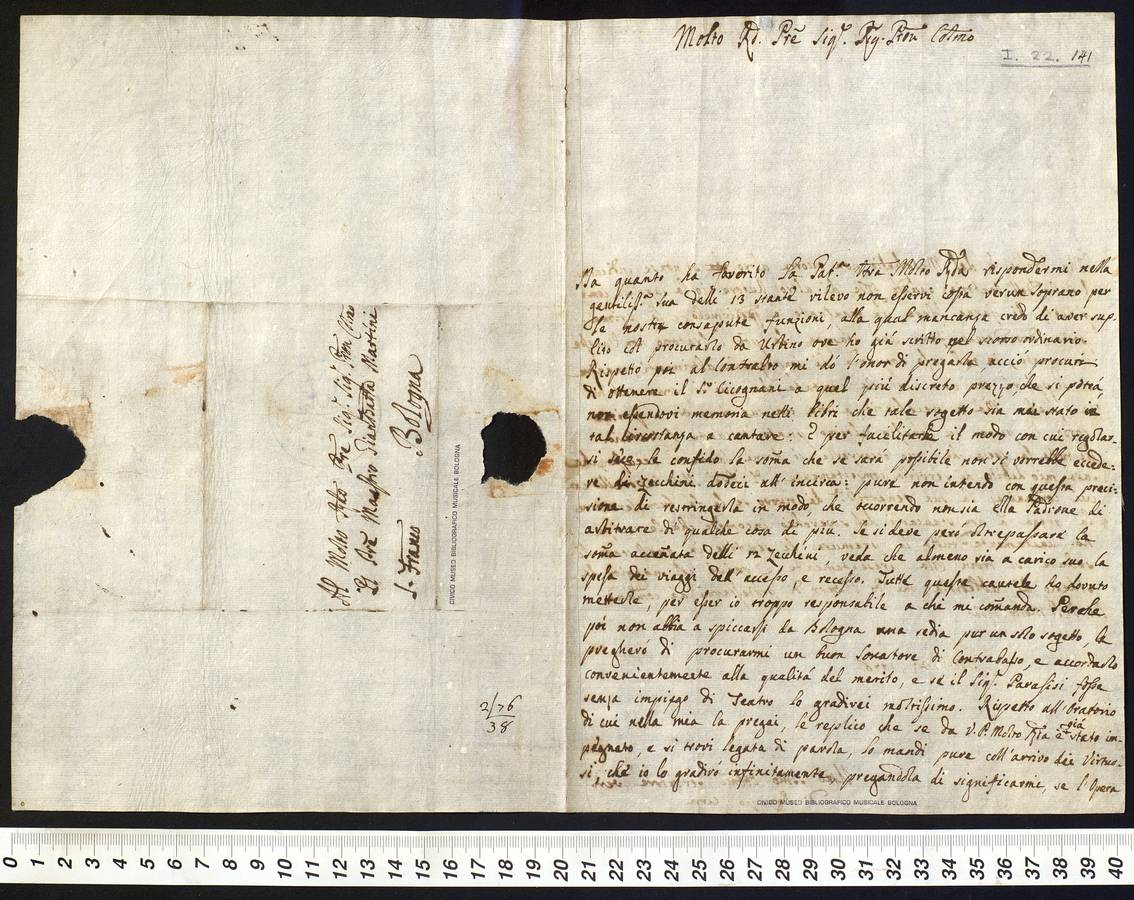 Molto Rd. Pre Sigr. Sig. Pron Colmo
I. 22. 141
Da quanto ha favorito la Pat.a Vra Molto Rda rispondermi nella
gentiliss.a sua delli 13 stante rilevo non esservi costà verun soprano per
le nostre consapute funzioni, alla qual mancanza credo di aver sup-
lito col procurarlo da Urbino ove ho già scritto nel scorso ordinario.
Rispeto poi al Contralto mi dó l'onor di pregarla, acció procuri
di ottenere il Sr. Cicognani a quel piú discreto prezzo, che si potrà,
non essendovi memoria nelli libri che tale sogetto sia mai stato in
tal circostanza a cantare: E per facilitarle il modo con cui regolar-
si le confido la soma che se sará possibile non si vorrebbe eccede-
re di zecchini dodeci all'incirca: pure non intendo con questa preci-
sione di restringerla in modo, che ocorrendo non sia ella Padrone di
arbitrare di qualche cosa di piú. Se si deve peró oltrepassare la
soma accenata delli 12 Zecchini, veda che almeno sia a carico suo la
spesa dei viaggi dell'accesso, e recesso. Tutte queste cautele ho dovuto
metterle, per esser io troppo responsabile a chi mi comanda. Perche
poi non abbia a spiccarsi da Bologna una sedia pur un solo sogetto, la
pregheró di procurarmi un buon Sonatore di Contrabasso, e accordarlo
convenientemente alla qualitá del merito, e se il Sigr. Parasisi fosse
senza impiego di Teatro lo gradirei moltissimo. Rispetto all'Oratorio
di cui nella mia la pregai, le replico che se da V. P. Molto Rda è già stato im-
pegnato, e si trovi legata di parola, lo mandi pure coll'arrivo dei Virtuo-
si, che io lo gradiró infinitamente pregandola di significarmi, se l'Opera
Al Molto Rdo Pre Sigr. Sigr. Pron Colmo
Il Pre Maestro Giambatta Martini
S. Franco
Bologna
2/76
38
CIVICO MUSEO BIBLIOGRAFICO MUSICALE BOLOGNA
CIVICO MUSEO BIBLIOGRAFICO MUSICALE BOLOGNA
0 1 2 3 4 5 6 7 8 9 10 11 12 13 14 15 16 17 18 19 20 21 22 23 24 25 26 27 28 29 30 31 32 33 34 35 36 37 38 39 40